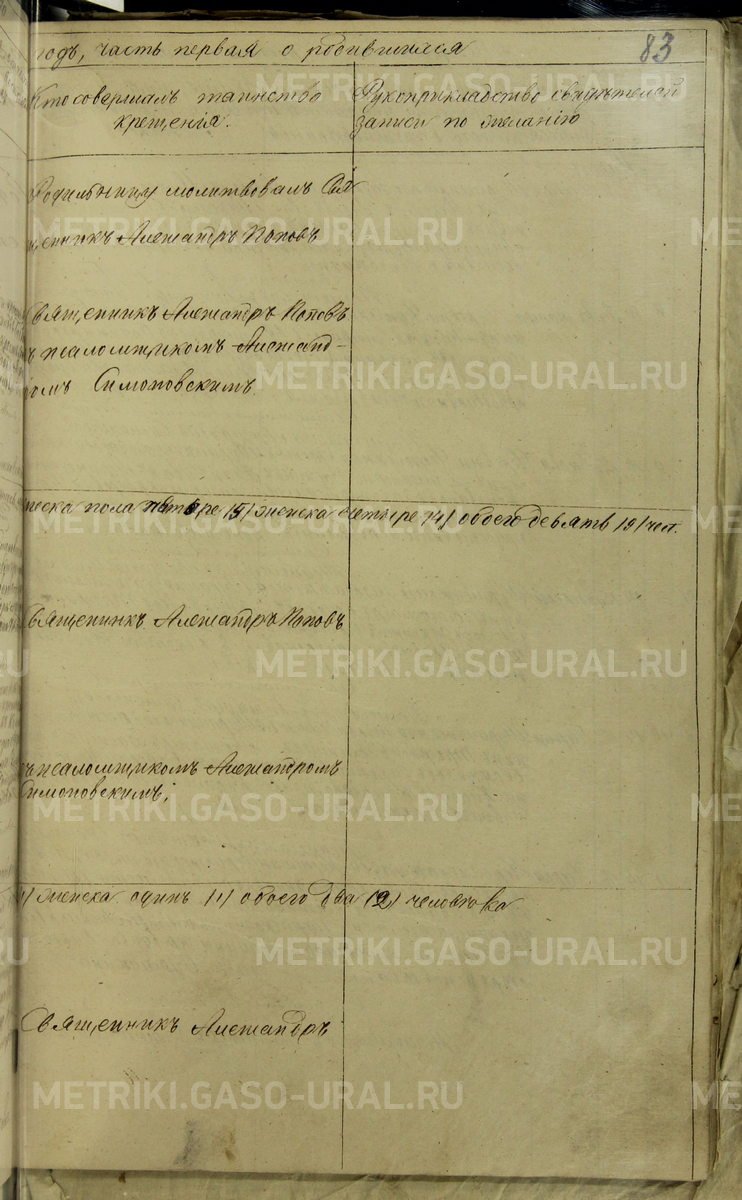 годъ, часть первая о родившихся
83
Кто совершалъ таинство
крещенія.
Рукоприкладство свидѣтелей
записи по желанію
Родильницу молитвовалъ Свя
щенникъ Александръ Поповъ
Священникъ Александръ Поповъ
съ псаломщикомъ Александ-
ромъ Симоновскимъ.
пола /5/ женска четыре /4/ обоего девять /9/ чел.
Священникъ Александръ Поповъ
съ псаломщикомъ Александромъ
Симоновскимъ;
/ женска одинъ /1/ обоего два /2/ человѣка
Священникъ Александръ
METRIKI.GASO-URAL.RU